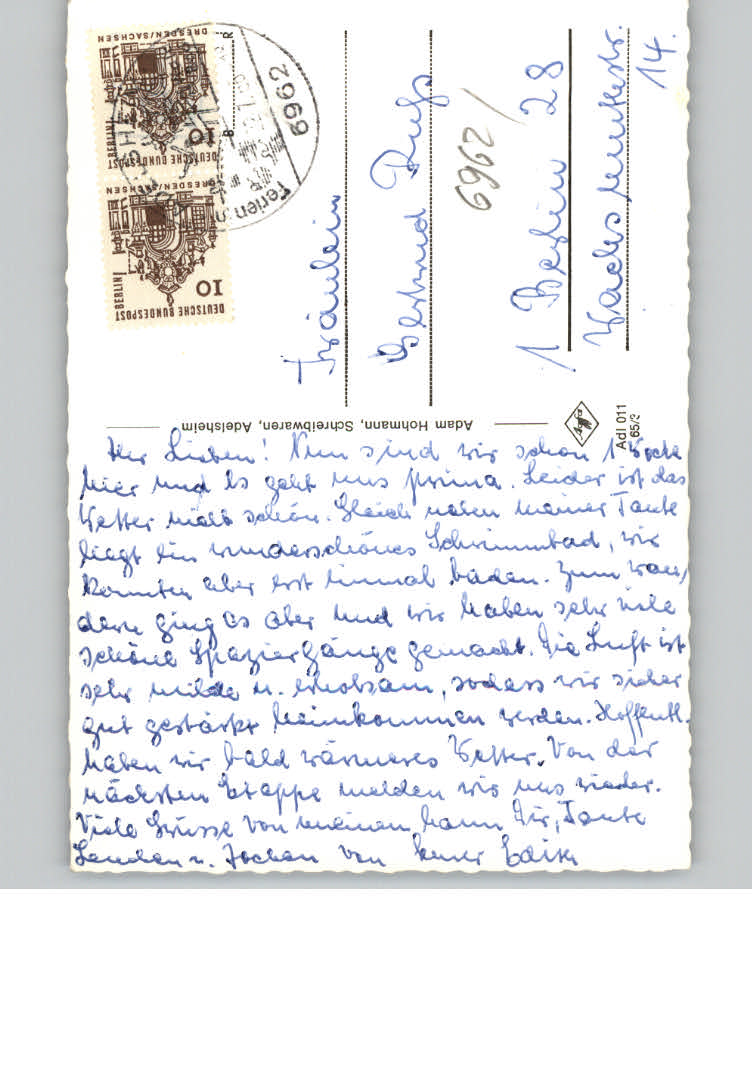 DEUTSCHE BUNDESPOST
BERLIN
10
DRESDEN/SACHSEN
DEUTSCHE BUNDESPOST
BERLIN
10
DRESDEN/SACHSEN
6962
Ferien
Fräulein
Gertrud
6962/
1 Berlin 28
Wachsmuthstr.
14.
Adam Hohmann, Schreibwaren, Adelsheim
Adl 011
65/3
Ihr Lieben! Nun sind wir schon 1 Woche
hier und es geht uns prima. Leider ist das
Wetter nicht schön. Gleich neben meiner Tante
liegt ein wunderschönes Schwimmbad, wir
konnten aber erst einmal baden. Zum wan-
dern ging es aber und wir haben sehr viele
schöne Spaziergänge gemacht. Die Luft ist
sehr milde u. erholsam, sodass wir sicher
gut gestärkt heimkommen werden. Hoffentl.
haben wir bald wärmeres Wetter. Von der
nächsten Etappe melden wir uns wieder.
Viele Grüsse von meinem Mann Dir, Tante
u. Jochen von Eurer Edith